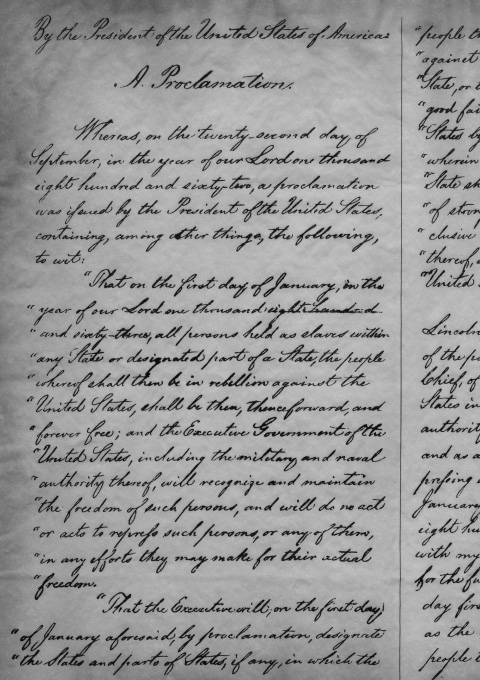 By the President of the United States of America:
A Proclamation.
Whereas, on the twenty-second day of
September, in the year of our Lord one thousand
eight hundred and sixty-two, a proclamation
was issued by the President of the United States,
containing, among other things, the following,
to wit:
"That on the first day of January, in the
"year of our Lord one thousand eight hundred
"and sixty-three, all persons held as slaves within
"any State or designated part of a State, the people
"whereof shall then be in rebellion against the
"United States, shall be then, thenceforward, and
"forever free; and the Executive Government of the
"United States, including the military and naval
"authority thereof, will recognize and maintain
"the freedom of such persons, and will do no act
"or acts to repress such persons, or any of them,
"in any efforts they may make for their actual
"freedom.
"That the Executive will, on the first day
"of January aforesaid, by proclamation, designate
"the States and parts of States, if any, in which the
"people
"against
"State, or
"good
"States by
"wherein
"State
"of
"clusive
"thereof,
"United
Lincoln
of the
Chief, of
States in
authority
and as a
pressing
January
eight
with my
for the
day
as the
people